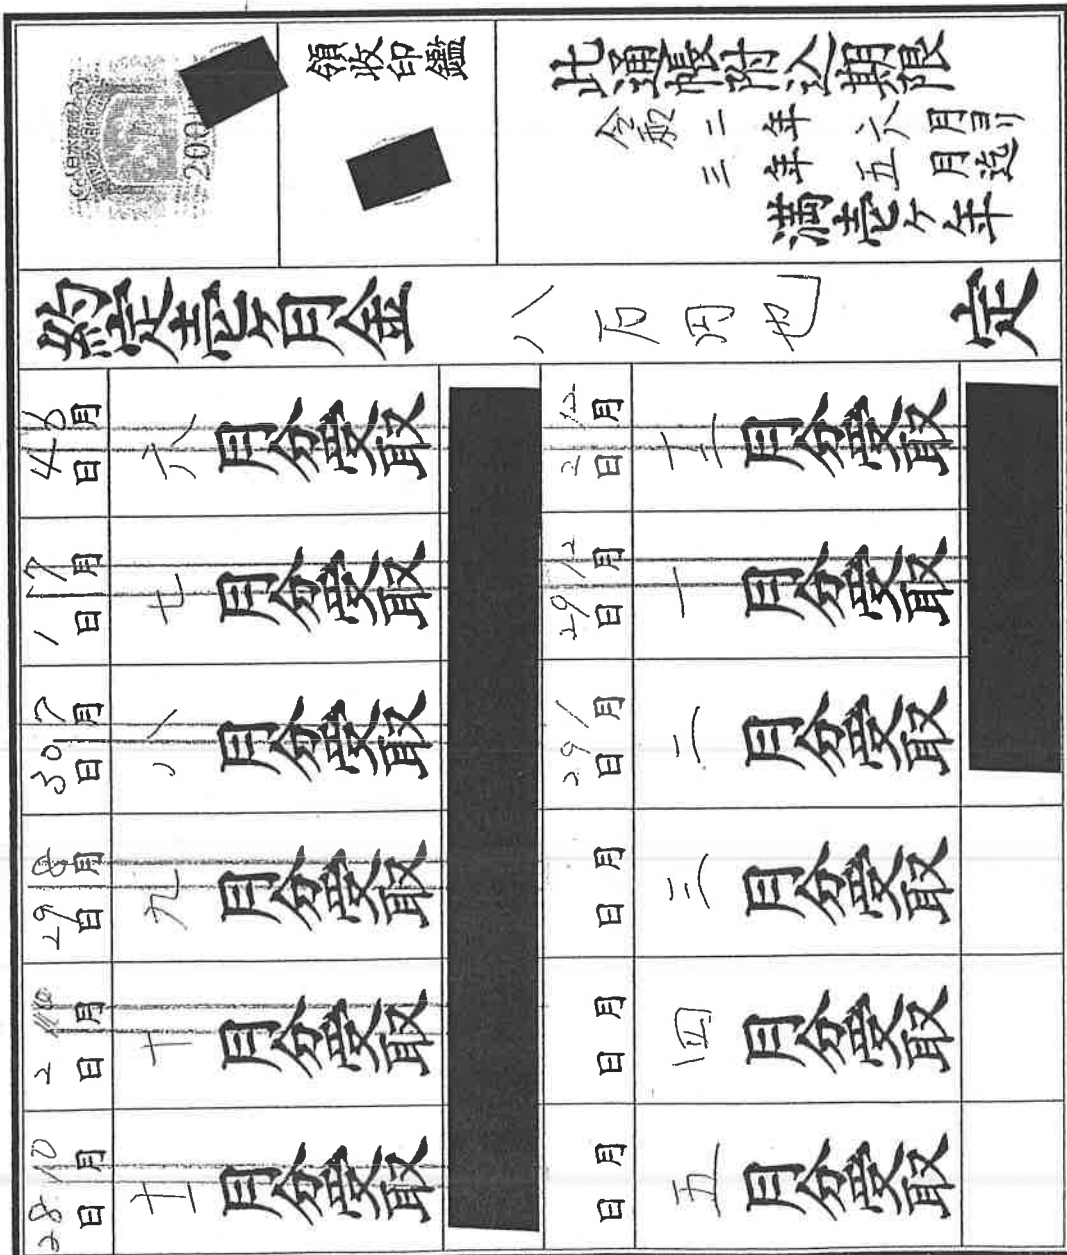 此通帳附込期限
令和二年六月ヨリ
三年五月迄
満壱ケ年
領收印鑑
200
約定壱ケ月金 八万円也 定
6月4日 六月分受取
7月1日 七月分受取
7月30日 八月分受取
8月29日 九月分受取
月2日 十月分受取
10月28日 十一月分受取
12月2日 十二月分受取
12月29日 一月分受取
1月29日 二月分受取
月 日 三月分受取
月 日 四月分受取
月 日 五月分受取